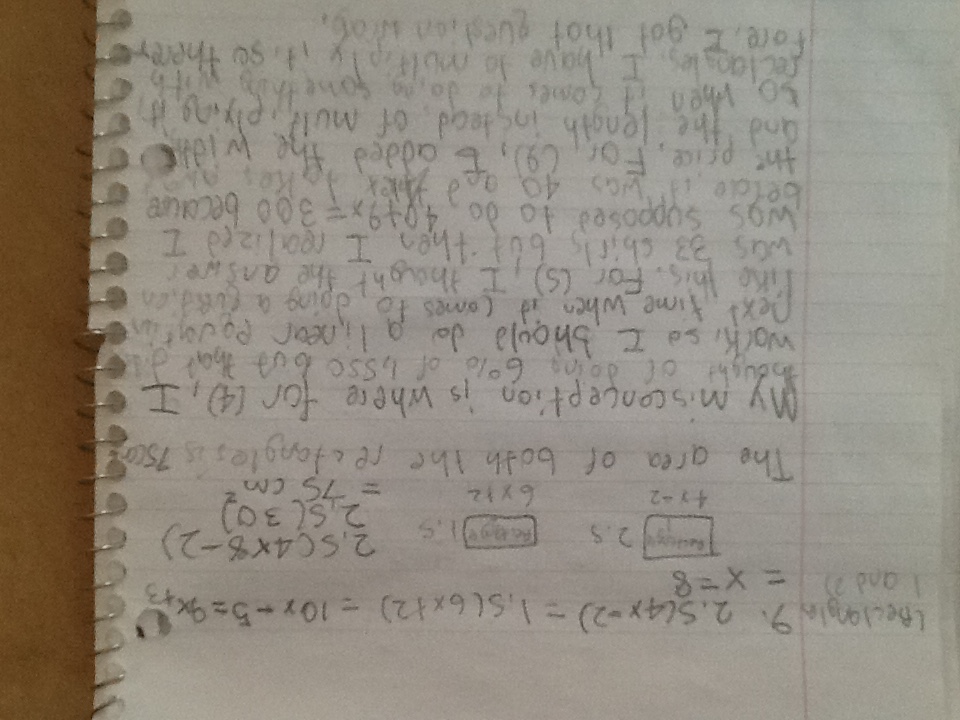 (Rectangle 9. 2.5(4x-2) = 1.5(6x+2) = 10x-5=9x+3
1 and 2) = x=8
Rectangle 2.5 Rectangle 1.5 2.5(4x8-2)
4x-2 6x+2 2.5(30)
= 75 cm²
The area of both the rectangles is 75cm²
My misconception is where for (4), I
thought of doing 6% of 1,550 but that
work, so I should do a linear equation
next time when it comes to doing a question
like this. For (5), I thought the answer
was 33 shirts but then I realized I
was supposed to do 40+9x=300 because
before it was 40 and
the price. For (9), I added the width
and the length instead of multiplying it,
so when it comes to doing something with
rectangles, I have to multiply it, so there-
fore, I got that question wrong.